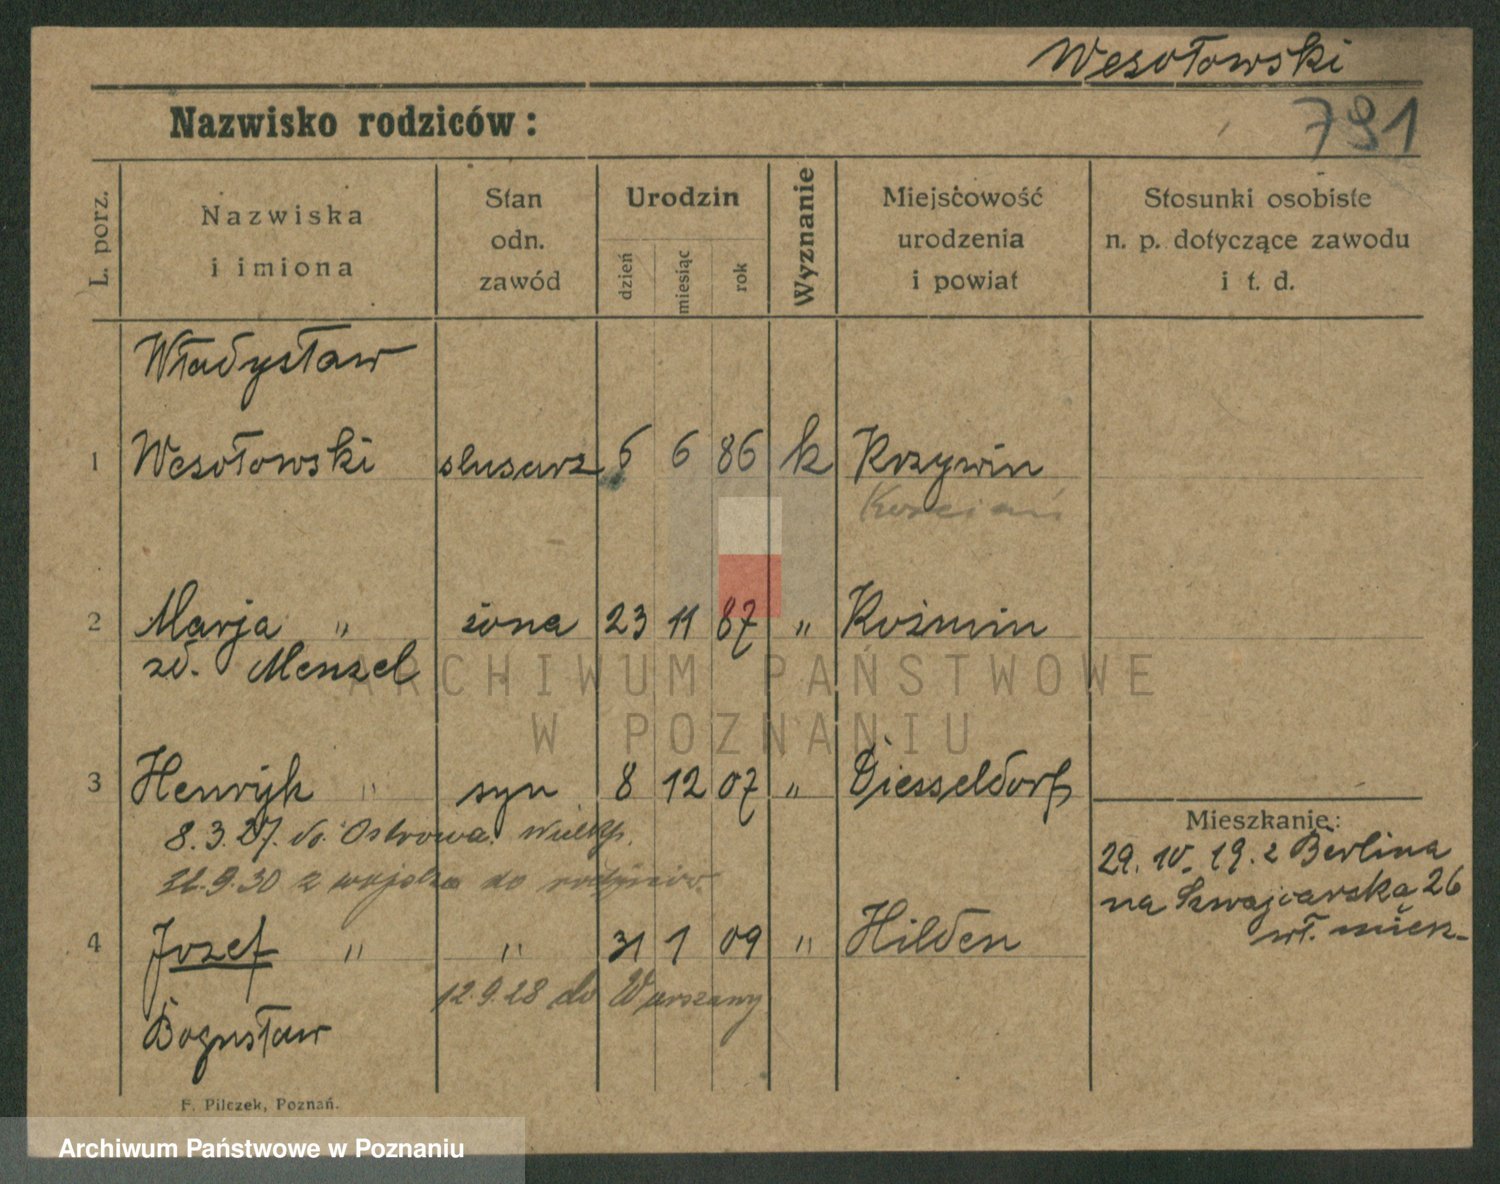 Wesołowski
Nazwisko rodziców :
791
L. porz.
Nazwiska
i imiona
Stan
odn.
zawód
Urodzin
dzień
miesiąc
rok
Wyznanie
Miejscowość
urodzenia
i powiat
Stosunki osobiste
n. p. dotyczące zawodu
i t. d.
Władysław
1 Wesołowski slusarz 6 6 86 k Krzywin
Kościań
2 Marja " żona 23 11 87 " Koźmin
zd. Menzel
3 Henryk " syn 8 12 07 " Diesseldorf
Mieszkanie:
8.3.27. do Ostrowa Wielkp.
29. IV. 19. z Berlina
9.30 z wojska do rodziców.
na Szwajcarska 26
wł. miesz.
4 Jozef " " 31 1 09 " Hilden
12.9.28 do Warszawy
Bogusław
F. Pilczek, Poznań.
ARCHIWUM PAŃSTWOWE
W POZNANIU
Archiwum Państwowe w Poznaniu